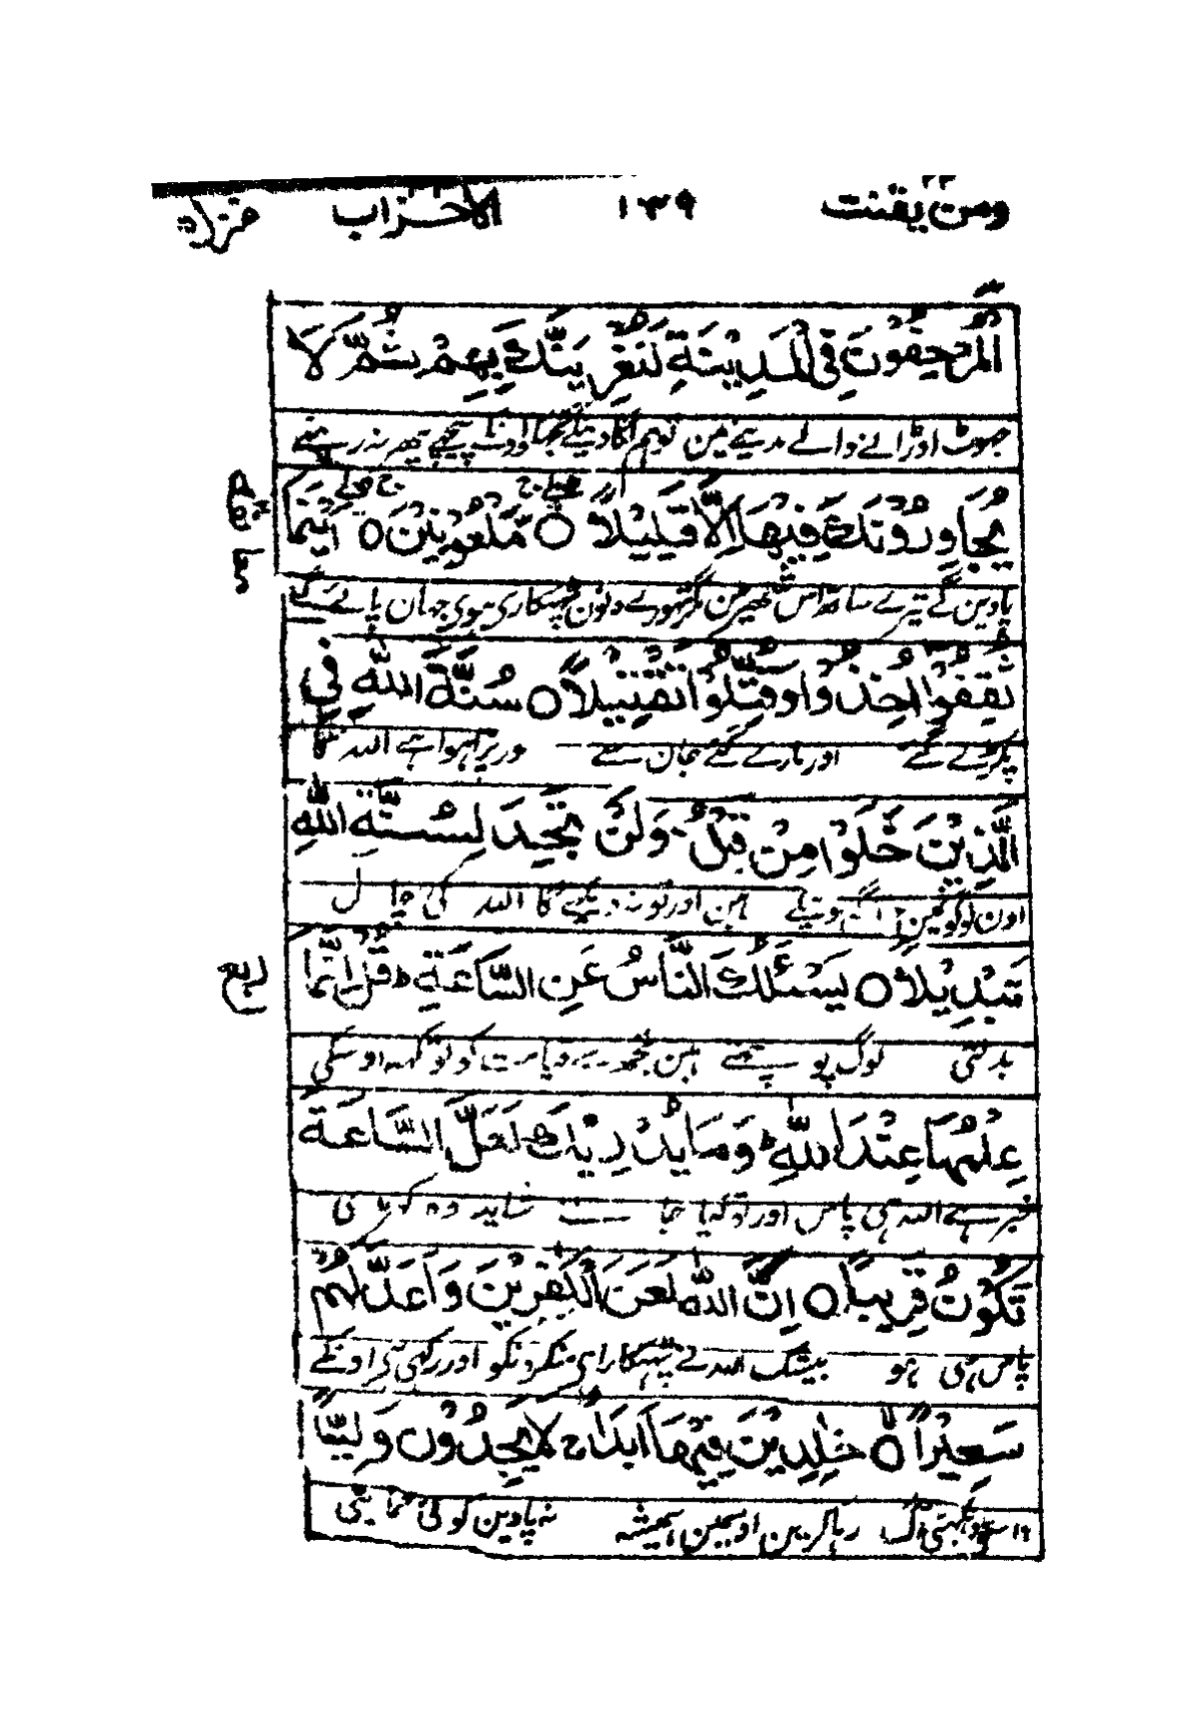 ومن يقنت ٢٢ ١٣٩ الاحزاب
الْمُرْجِفُوْنَ فِي الْمَدِيْنَةِ لَنُغْرِيَنَّكَ بِهِمْ ثُمَّ لَا
جھوٹ اوڑانے والے مدینے مین توہم لگا دینگے تجھکو اونکے پیچھے پھر نہ رہنے
يُجَاوِرُوْنَكَ فِيْهَا اِلَّا قَلِيْلًا ۝ مَّلْعُوْنِيْنَ ۝ اَيْنَمَا
پاوینگے تیرے ساتھ اس شہر مین مگر تھوڑے دنون پھٹکاری ہوی جہان پائے گئے
ثُقِفُوْا اُخِذُوْا وَقُتِّلُوْا تَقْتِيْلًا ۝ سُنَّةَ اللّٰهِ فِي
پکڑے گے اور مارے گئے جان سے اللہ کا
الَّذِيْنَ خَلَوْا مِنْ قَبْلُ ۚ وَلَنْ تَجِدَ لِسُنَّةِ اللّٰهِ
اون لوگونمین ہین اور تو نہ دیکھے گا اللہ کی چال
تَبْدِيْلًا ۝ يَسْـَٔلُكَ النَّاسُ عَنِ السَّاعَةِ ؕ قُلْ اِنَّمَا
ربع
بدلتی لوگ پوچھتے ہین تجھسے قیامت کو تو کہہ اوسکی
عِلْمُهَا عِنْدَ اللّٰهِ ؕ وَمَا يُدْرِيْكَ لَعَلَّ السَّاعَةَ
خبر ہے اللہ ہی پاس اور تو کیا جانے شاید وہ گھڑی
تَكُوْنُ قَرِيْبًا ۝ اِنَّ اللّٰهَ لَعَنَ الْكٰفِرِيْنَ وَاَعَدَّ لَهُمْ
پاس ہی ہو بیشک اللہ نے پھٹکارا ہی منکرونکو اور رکھی ہی اونکے
سَعِيْرًا ۝ خٰلِدِيْنَ فِيْهَا اَبَدًا ۚ لَا يَجِدُوْنَ وَلِيًّا
واسطے دہکتی آگ رہا کرین اوسمین ہمیشہ نہ پاوین کوئی حمایتی